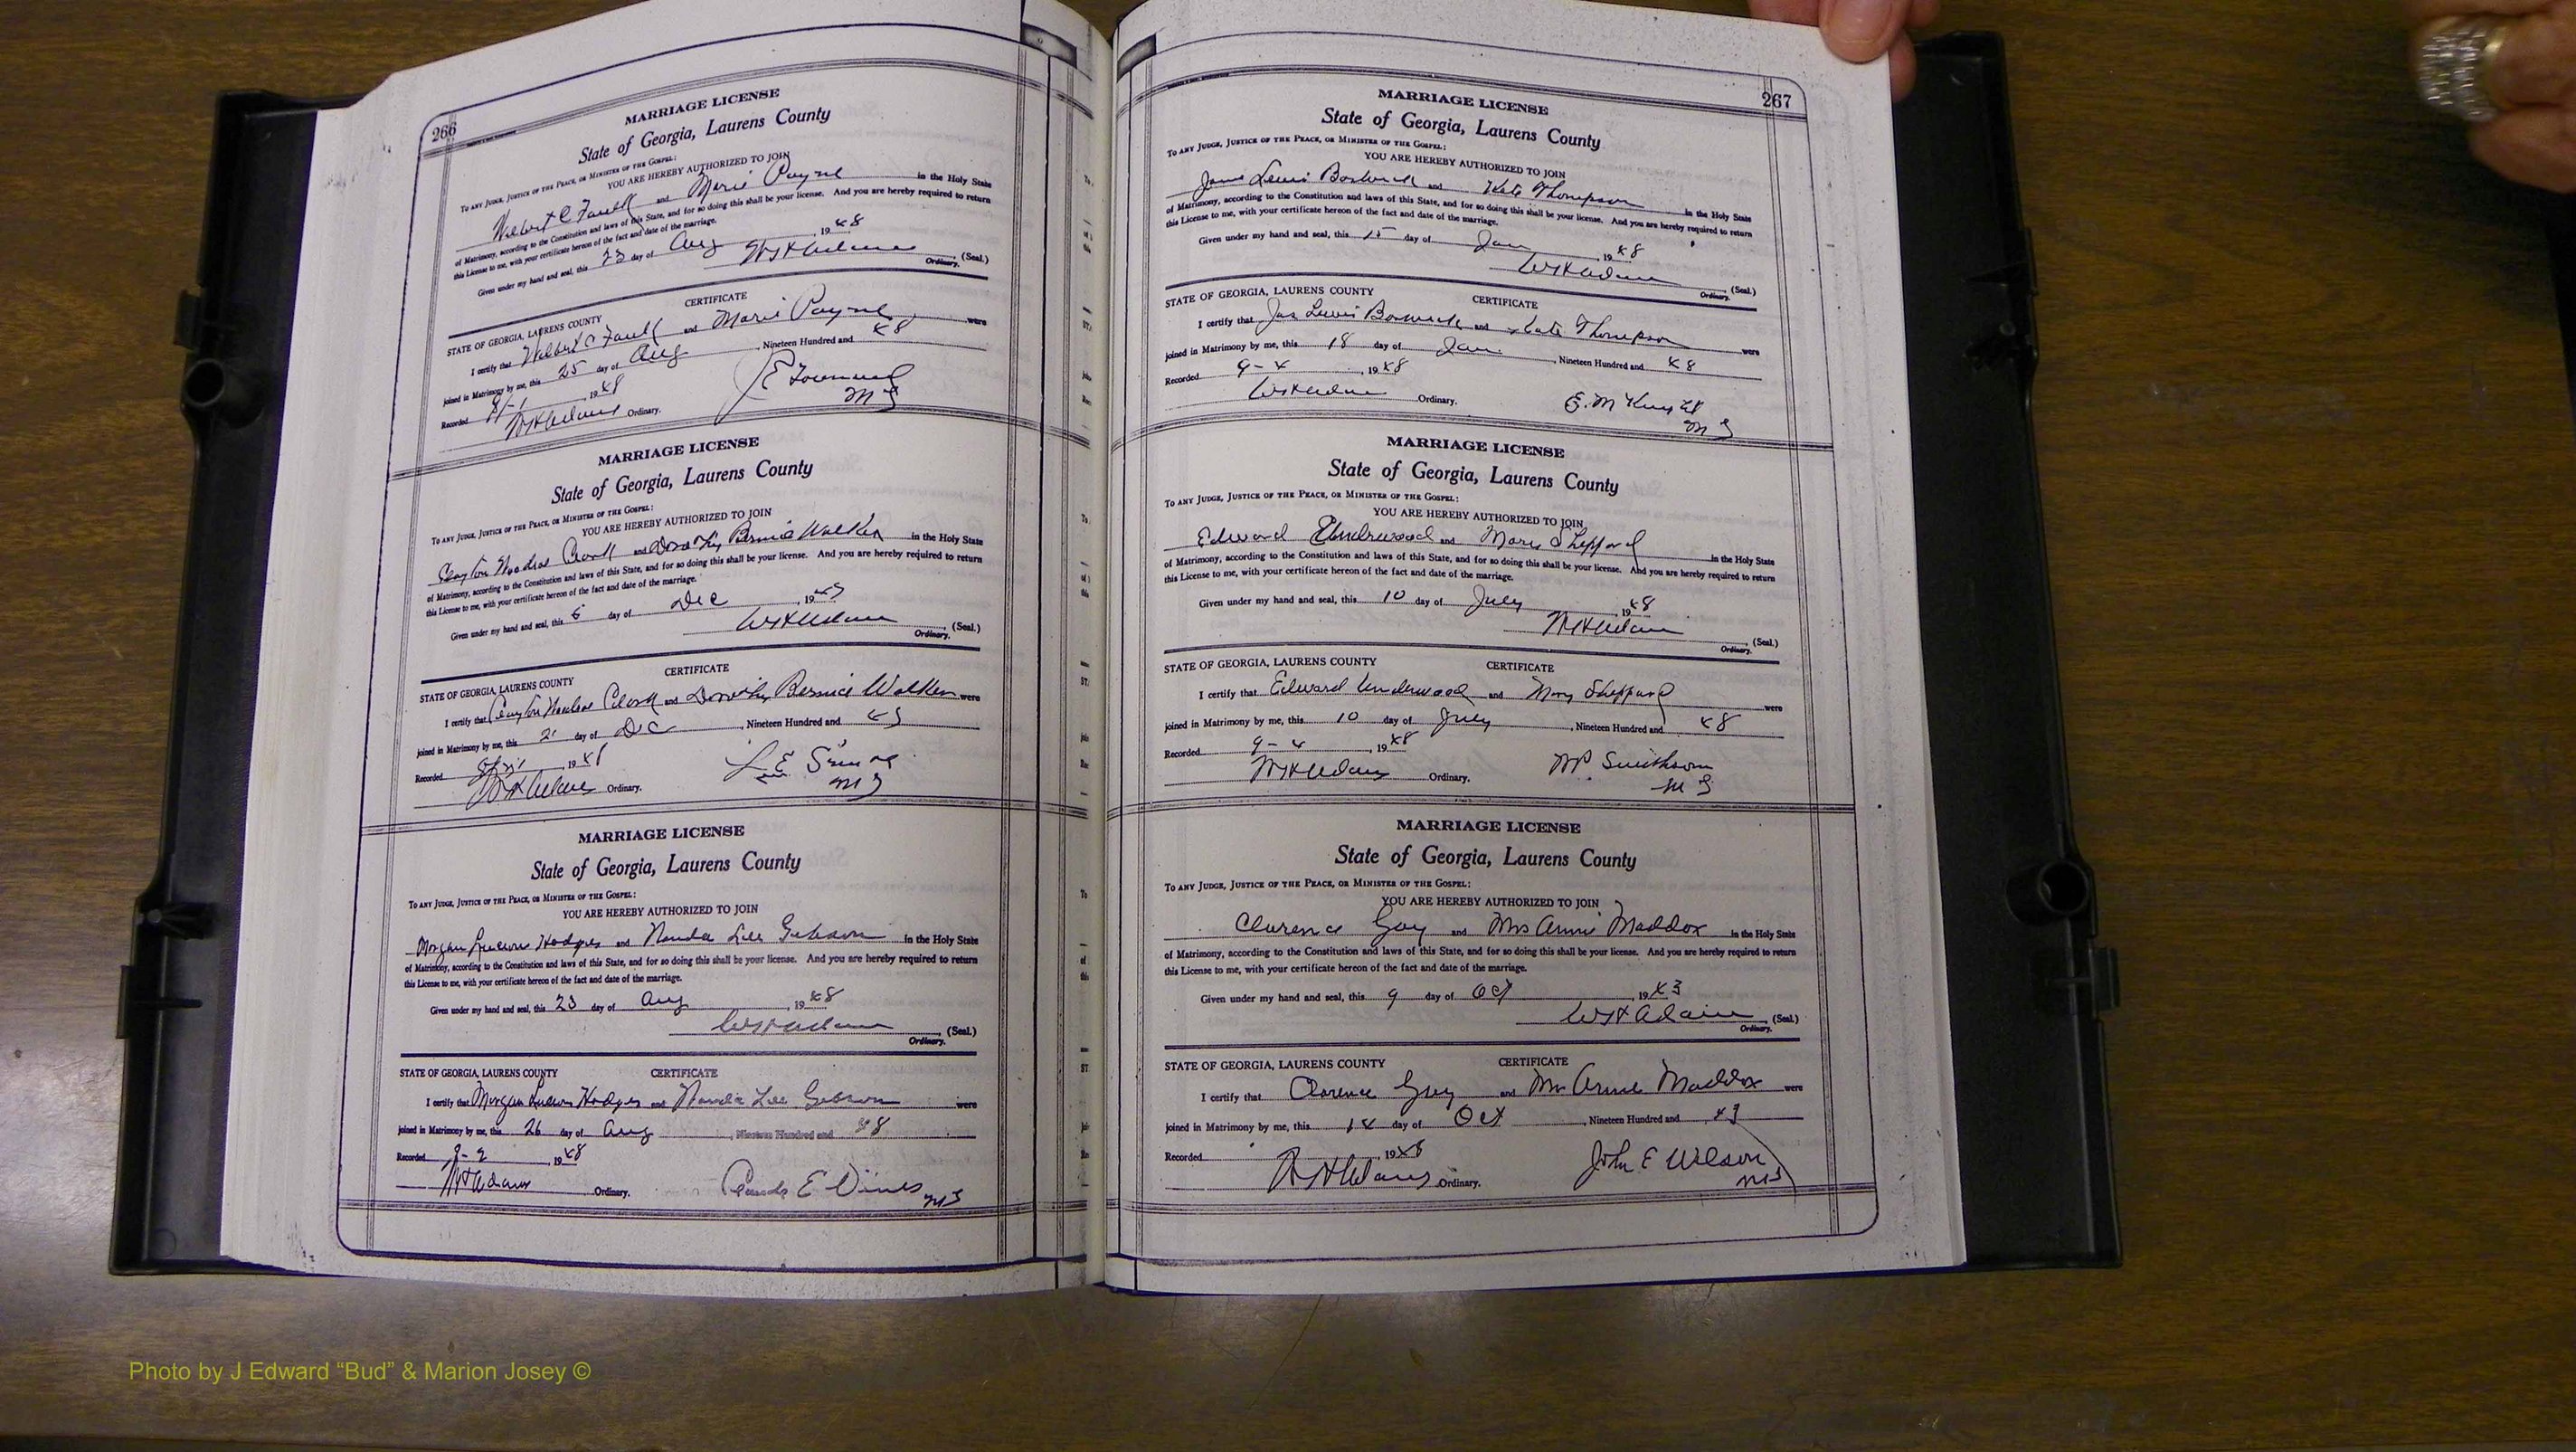 266
MARRIAGE LICENSE
State of Georgia, Laurens County
To any Judge, Justice of the Peace, or Minister of the Gospel:
YOU ARE HEREBY AUTHORIZED TO JOIN
Wilbert C Faulk and Marie Payne in the Holy State
of Matrimony, according to the Constitution and laws of this State, and for so doing this shall be your license. And you are hereby required to return
this License to me, with your certificate hereon of the fact and date of the marriage.
Given under my hand and seal, this 23 day of Aug, 1948
(Seal.)
Ordinary.
CERTIFICATE
STATE OF GEORGIA, LAURENS COUNTY
I certify that Wilbert C Faulk and Marie Payne were
joined in Matrimony by me, this 25 day of Aug, Nineteen Hundred and 48
Recorded 9/-1, 1948
Ordinary.
MG
MARRIAGE LICENSE
State of Georgia, Laurens County
To any Judge, Justice of the Peace, or Minister of the Gospel:
YOU ARE HEREBY AUTHORIZED TO JOIN
Clayton and Dorothy Bernice Walker in the Holy State
of Matrimony, according to the Constitution and laws of this State, and for so doing this shall be your license. And you are hereby required to return
this License to me, with your certificate hereon of the fact and date of the marriage.
Given under my hand and seal, this day of Dec, 19
(Seal.)
Ordinary.
CERTIFICATE
STATE OF GEORGIA, LAURENS COUNTY
I certify that Clayton and Dorothy Bernice Walker were
joined in Matrimony by me, this day of Dec, Nineteen Hundred and
Recorded, 19
Ordinary.
MG
MARRIAGE LICENSE
State of Georgia, Laurens County
To any Judge, Justice of the Peace, or Minister of the Gospel:
YOU ARE HEREBY AUTHORIZED TO JOIN
Morgan Hodges and Lee Gibson in the Holy State
of Matrimony, according to the Constitution and laws of this State, and for so doing this shall be your license. And you are hereby required to return
this License to me, with your certificate hereon of the fact and date of the marriage.
Given under my hand and seal, this 23 day of Aug, 1948
(Seal.)
Ordinary.
STATE OF GEORGIA, LAURENS COUNTY CERTIFICATE
I certify that Morgan Hodges and Lee Gibson were
joined in Matrimony by me, this 26 day of Aug, Nineteen Hundred and 48
Recorded 9-2, 1948
WH Adams Ordinary.
E Vines
MG
267
MARRIAGE LICENSE
State of Georgia, Laurens County
To any Judge, Justice of the Peace, or Minister of the Gospel:
YOU ARE HEREBY AUTHORIZED TO JOIN
James Lewis and Kate Thompson in the Holy State
of Matrimony, according to the Constitution and laws of this State, and for so doing this shall be your license. And you are hereby required to return
this License to me, with your certificate hereon of the fact and date of the marriage.
Given under my hand and seal, this 15 day of Jan, 1948
(Seal.)
Ordinary.
STATE OF GEORGIA, LAURENS COUNTY CERTIFICATE
I certify that Jas Lewis and Kate Thompson were
joined in Matrimony by me, this 18 day of Jan., Nineteen Hundred and 48
Recorded 9-4, 1948
Ordinary.
MG
MARRIAGE LICENSE
State of Georgia, Laurens County
To any Judge, Justice of the Peace, or Minister of the Gospel:
YOU ARE HEREBY AUTHORIZED TO JOIN
Edward Underwood and Mary Sheppard in the Holy State
of Matrimony, according to the Constitution and laws of this State, and for so doing this shall be your license. And you are hereby required to return
this License to me, with your certificate hereon of the fact and date of the marriage.
Given under my hand and seal, this 10 day of July, 1948
(Seal.)
Ordinary.
STATE OF GEORGIA, LAURENS COUNTY CERTIFICATE
I certify that Edward Underwood and Mary Sheppard were
joined in Matrimony by me, this 10 day of July, Nineteen Hundred and 48
Recorded 9-4, 1948
WH Adams Ordinary.
Smithson
MG
MARRIAGE LICENSE
State of Georgia, Laurens County
To any Judge, Justice of the Peace, or Minister of the Gospel:
YOU ARE HEREBY AUTHORIZED TO JOIN
Clarence Guy and Mrs Annie Maddox in the Holy State
of Matrimony, according to the Constitution and laws of this State, and for so doing this shall be your license. And you are hereby required to return
this License to me, with your certificate hereon of the fact and date of the marriage.
Given under my hand and seal, this 9 day of Oct, 1943
WH Adams (Seal.)
Ordinary.
STATE OF GEORGIA, LAURENS COUNTY CERTIFICATE
I certify that Clarence Guy and Mrs Annie Maddox were
joined in Matrimony by me, this 14 day of Oct, Nineteen Hundred and 43
Recorded, 1948
Ordinary.
John E Wilson
MG
Photo by J Edward “Bud” & Marion Josey ©